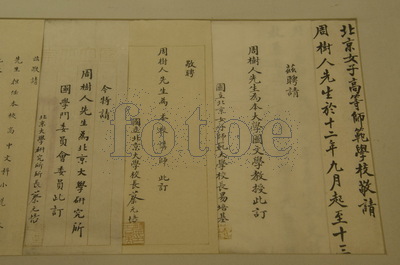 北京女子高等師範學校敬請
周樹人先生於十二年九月起至十三
茲聘請
周樹人先生為本大學國文學教授此訂
國立北京女子師範大學校長易培基
敬聘
周樹人先生為本校講師此訂
國立北京大學校長蔡元培
今特請
周樹人先生為北京大學研究所
國學門委員會委員此訂
北京大學研究所所長蔡元培
茲敬請
先生擔任本校高中文科小說
fotoe